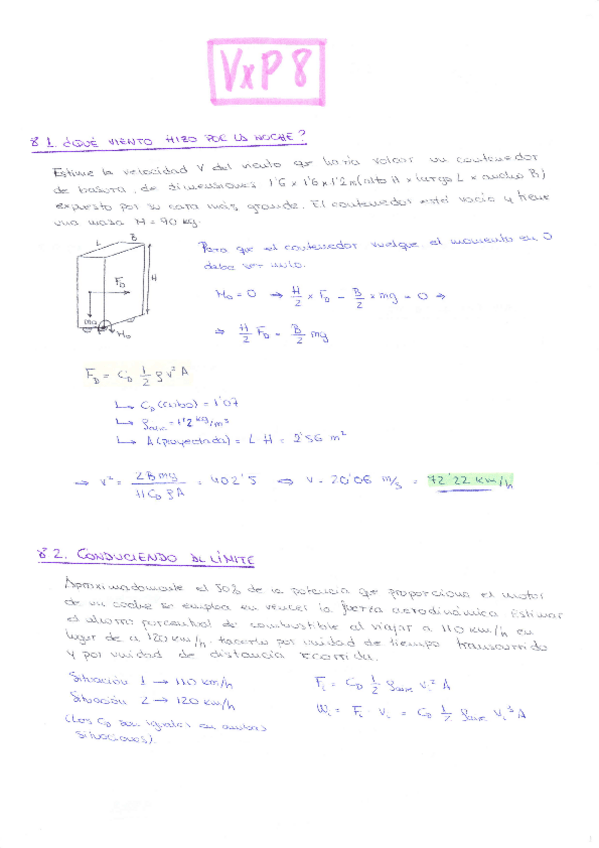 VxP 8
8 1. ¿QUÉ VIENTO HIZO POR LA NOCHE?
Estime la velocidad V del viento que haría volcar un contenedor
de basura, de dimensiones 1'6 x 1'6 x 1'2 m (alto H x largo L x ancho B)
expuesto por su cara más grande. El contenedor está vacío y tiene
una masa M = 90 kg.
L B H F_D mg O M_O
Para que el contenedor vuelque el momento en O
debe ser nulo.
M_O = 0 → H/2 x F_D - B/2 x mg = 0 ⇒
⇒ H/2 F_D = B/2 mg
F_D = C_D 1/2 ρ v² A
↳ C_D (cubo) = 1'07
↳ ρ_aire = 1'2 kg/m³
↳ A (proyectada) = L H = 2'56 m²
⇒ v² = 2Bmg / H C_D ρ A = 402'5 ⇔ v = 20'06 m/s = 72'22 km/h
8 2. CONDUCIENDO AL LÍMITE
Aproximadamente el 50% de la potencia que proporciona el motor
de un coche se emplea en vencer la fuerza aerodinámica. Estimar
el ahorro porcentual de combustible al viajar a 110 km/h en
lugar de a 120 km/h. hacerlo por unidad de tiempo transcurrido
y por unidad de distancia recorrida.
Situación 1 → 110 km/h
Situación 2 → 120 km/h
(Los C_D son iguales en ambas
situaciones).
F_i = C_D 1/2 ρ_aire v_i² A
Ẇ_i = F_i · v_i = C_D 1/2 ρ_aire v_i³ A